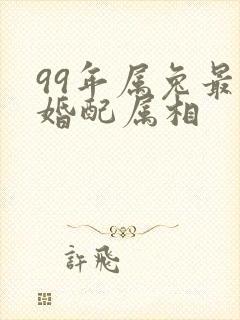 99年属兔最
婚配属相
許飛